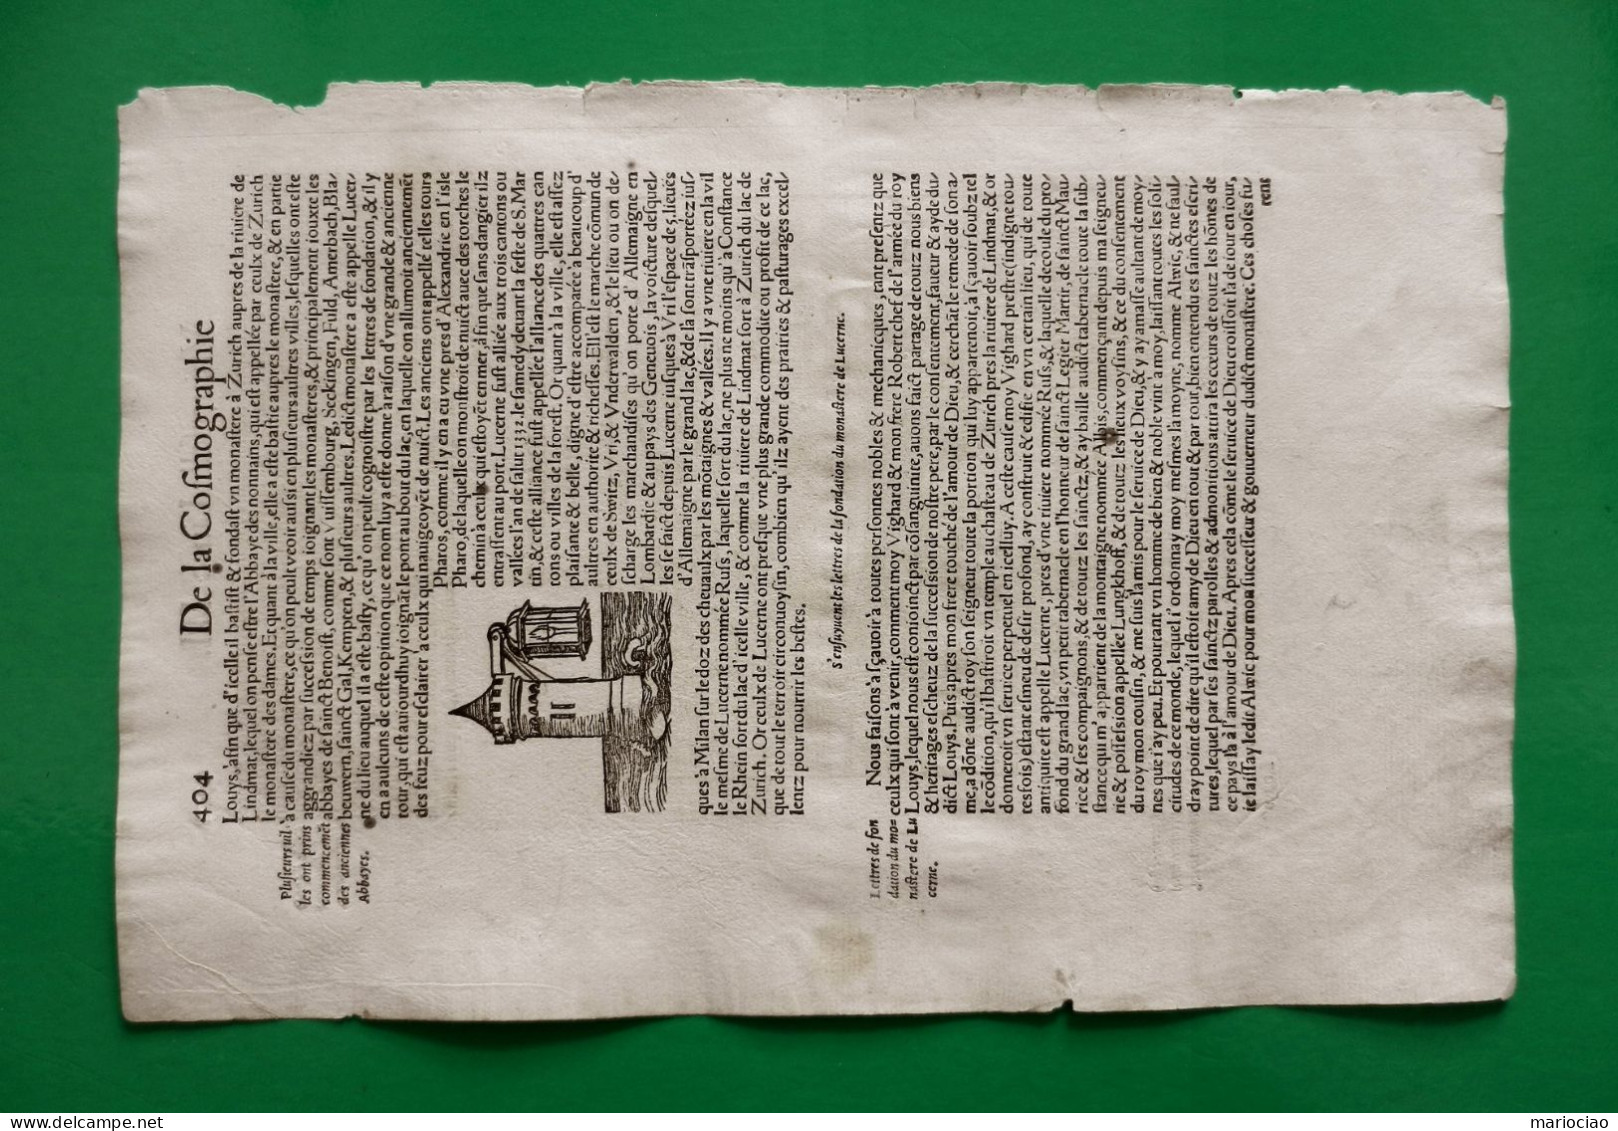 404 De la Coſmographie
Louys, à fin que d'icelle il baſtiſt & fondaſt vn monaſtere à Zurich aupres de la riuiere de
Lindmat, lequel on penſe eſtre l'Abbaye des nonnains, qui eſt appellée par ceulx de Zurich
le monaſtere des dames. Et quant à la ville, elle a eſté baſtie aupres le monaſtere, & en partie
Pluſieurs vil-
les ont prins
commencemēt
des anciennes
Abbayes.
à cauſe du monaſtere, ce qu'on peult veoir auſsi en pluſieurs aultres villes, leſquelles ont eſte
aggrandiez par ſucceſsion de temps ioignant les monaſteres, & principalement iouxte les
abbayes de ſainct Benoiſt, comme ſont Vuiſſembourg, Seckingen, Fuld, Amerbach, Bla-
beuwern, ſainct Gal, Kempten, & pluſieurs aultres. Ledict monaſtere a eſte appelle Lucer-
ne du lieu auquel il a eſte baſty, ce qu'on peult cognoiſtre par les lettres de fondation, & il y
en a aulcuns de ceſte opinion que ce nom luy a eſte donne à raiſon d'vne grande & ancienne
tour, qui eſt auiourdhuy ioignāt le pont au bout du lac, en laquelle on allumoit anciennemēt
des feuz pour eſclairer à ceulx qui nauigeoyēt de nuict. Les anciens ont appellé telles tours
Pharos, comme il y en a eu vne pres d'Alexandrie en l'isle
Pharo, de laquelle on monſtroit de nuict auec des torches le
chemin à ceulx qui eſtoyēt en mer, à fin que ſans dangier ilz
entraſſent au port. Lucerne fuſt alliée aux trois cantons ou
vallées l'an de ſalut 1332. le ſamedy deuant la feſte de S. Mar
tin, & ceſte alliance fuſt appellée l'alliance des quattres can
tons ou villes de la foreſt. Or quant à la ville, elle eſt aſſez
plaiſante & belle, digne d'eſtre accomparée à beaucoup d'
aultres en authorite & richeſſes. Ell'eſt le marche cōmun de
ceulx de Switz, Vri, & Vnderwalden, & le lieu ou on de-
ſcharge les marchandiſes qu'on porte d'Allemaigne en
Lombardie & au pays des Geneuois, la voicture deſquel-
les ſe faict depuis Lucerne iuſques à Vri l'eſpace de 5. lieuēs
d'Allemaigne par le grand lac, & de là ſont trāſportéez iuſ-
ques à Milan ſur le doz des cheuaulx par les mōtaignes & vallées. Il y a vne riuiere en la vil
le meſme de Lucerne nommée Ruſs, laquelle ſort du lac, ne plus ne moins qu'à Conſtance
le Rhein ſort du lac d'icelle ville, & comme la riuiere de Lindmat ſort à Zurich du lac de
Zurich. Or ceulx de Lucerne ont preſque vne plus grande commodite ou profit de ce lac,
que de tout le terroir circonuoyſin, combien qu'ilz ayent des prairies & paſturages excel
lentz pour nourrir les beſtes.
S'enſuyuent les lettres de la fondation du monaſtere de Lucerne.
Lettres de fon
dation du mo=
naſtere de Lu
cerne.
Nous faiſons à ſçauoir à toutes perſonnes nobles & mechanicques, tant preſentz que
ceulx qui ſont à venir, comment moy Vighard & mon frere Robert chef de l'armée du roy
Louys, lequel nous eſt conioinct par cōſanguinite, auons faict partage de toutz nous biens
& heritages eſcheuz de la ſucceſsion de noſtre pere, par le conſentement, faueur & ayde du-
dict Louys. Puis apres mon frere touché de l'amour de Dieu, & cerchāt le remede de ſon a-
me, a dōne audict roy ſon ſeigneur toute la portion qui luy appartenoit, à ſçauoir ſoubz tel
le cōdition, qu'il baſtiroit vn temple au chaſteau de Zurich pres la riuiere de Lindmat, & or
donneroit vn ſeruice perpetuel en icelluy. A ceſte cauſe moy Vighard preſtre (indigne tou-
tesfois) eſtant eſmeu de deſir profond, ay conſtruit & ediſie en vn certain lieu, qui de toute
antiquite eſt appelle Lucerne, pres d'vne riuiere nommée Ruſs, & laquelle decoule du pro-
fond du grand lac, vn petit tabernacle en l'honneur de ſainct Legier Martir, de ſainct Mau-
rice & ſes compaignons, & de toutz les ſainctz, & ay baille audict tabernacle toute la ſub-
ſtance qui m'appartient de la montaigne nommée Albis, commençant depuis ma ſeigneu-
rie & poſſeſsion appellée Lungkhoff, & de toutz les lieux voyſins, & ce du conſentement
du roy mon couſin, & me ſuis là mis pour le ſeruice de Dieu, & y ay amaſſe aultant de moy-
nes que i'ay peu. Et pourtant vn homme de bien & noble vint à moy, laiſſant toutes les ſoli-
citudes de ce monde, lequel i'ordonnay moy meſmes la moyne, nomme Alwic, & ne faul-
dray point de dire qu'il eſtoit amy de Dieu en tout & par tout, bien entendu es ſainctes eſcri-
tures, lequel par ſes ſainctz parolles & admonitions attira les cœurs de toutz les hōmes de
ce pays la à l'amour de Dieu. Apres cela cōme le ſeruice de Dieu croiſſoit là de iour en iour,
ie laiſſay ledit Alwic pour mon ſucceſſeur & gouuerneur dudict monaſtere. Ces choſes fu-
rent
mariociao